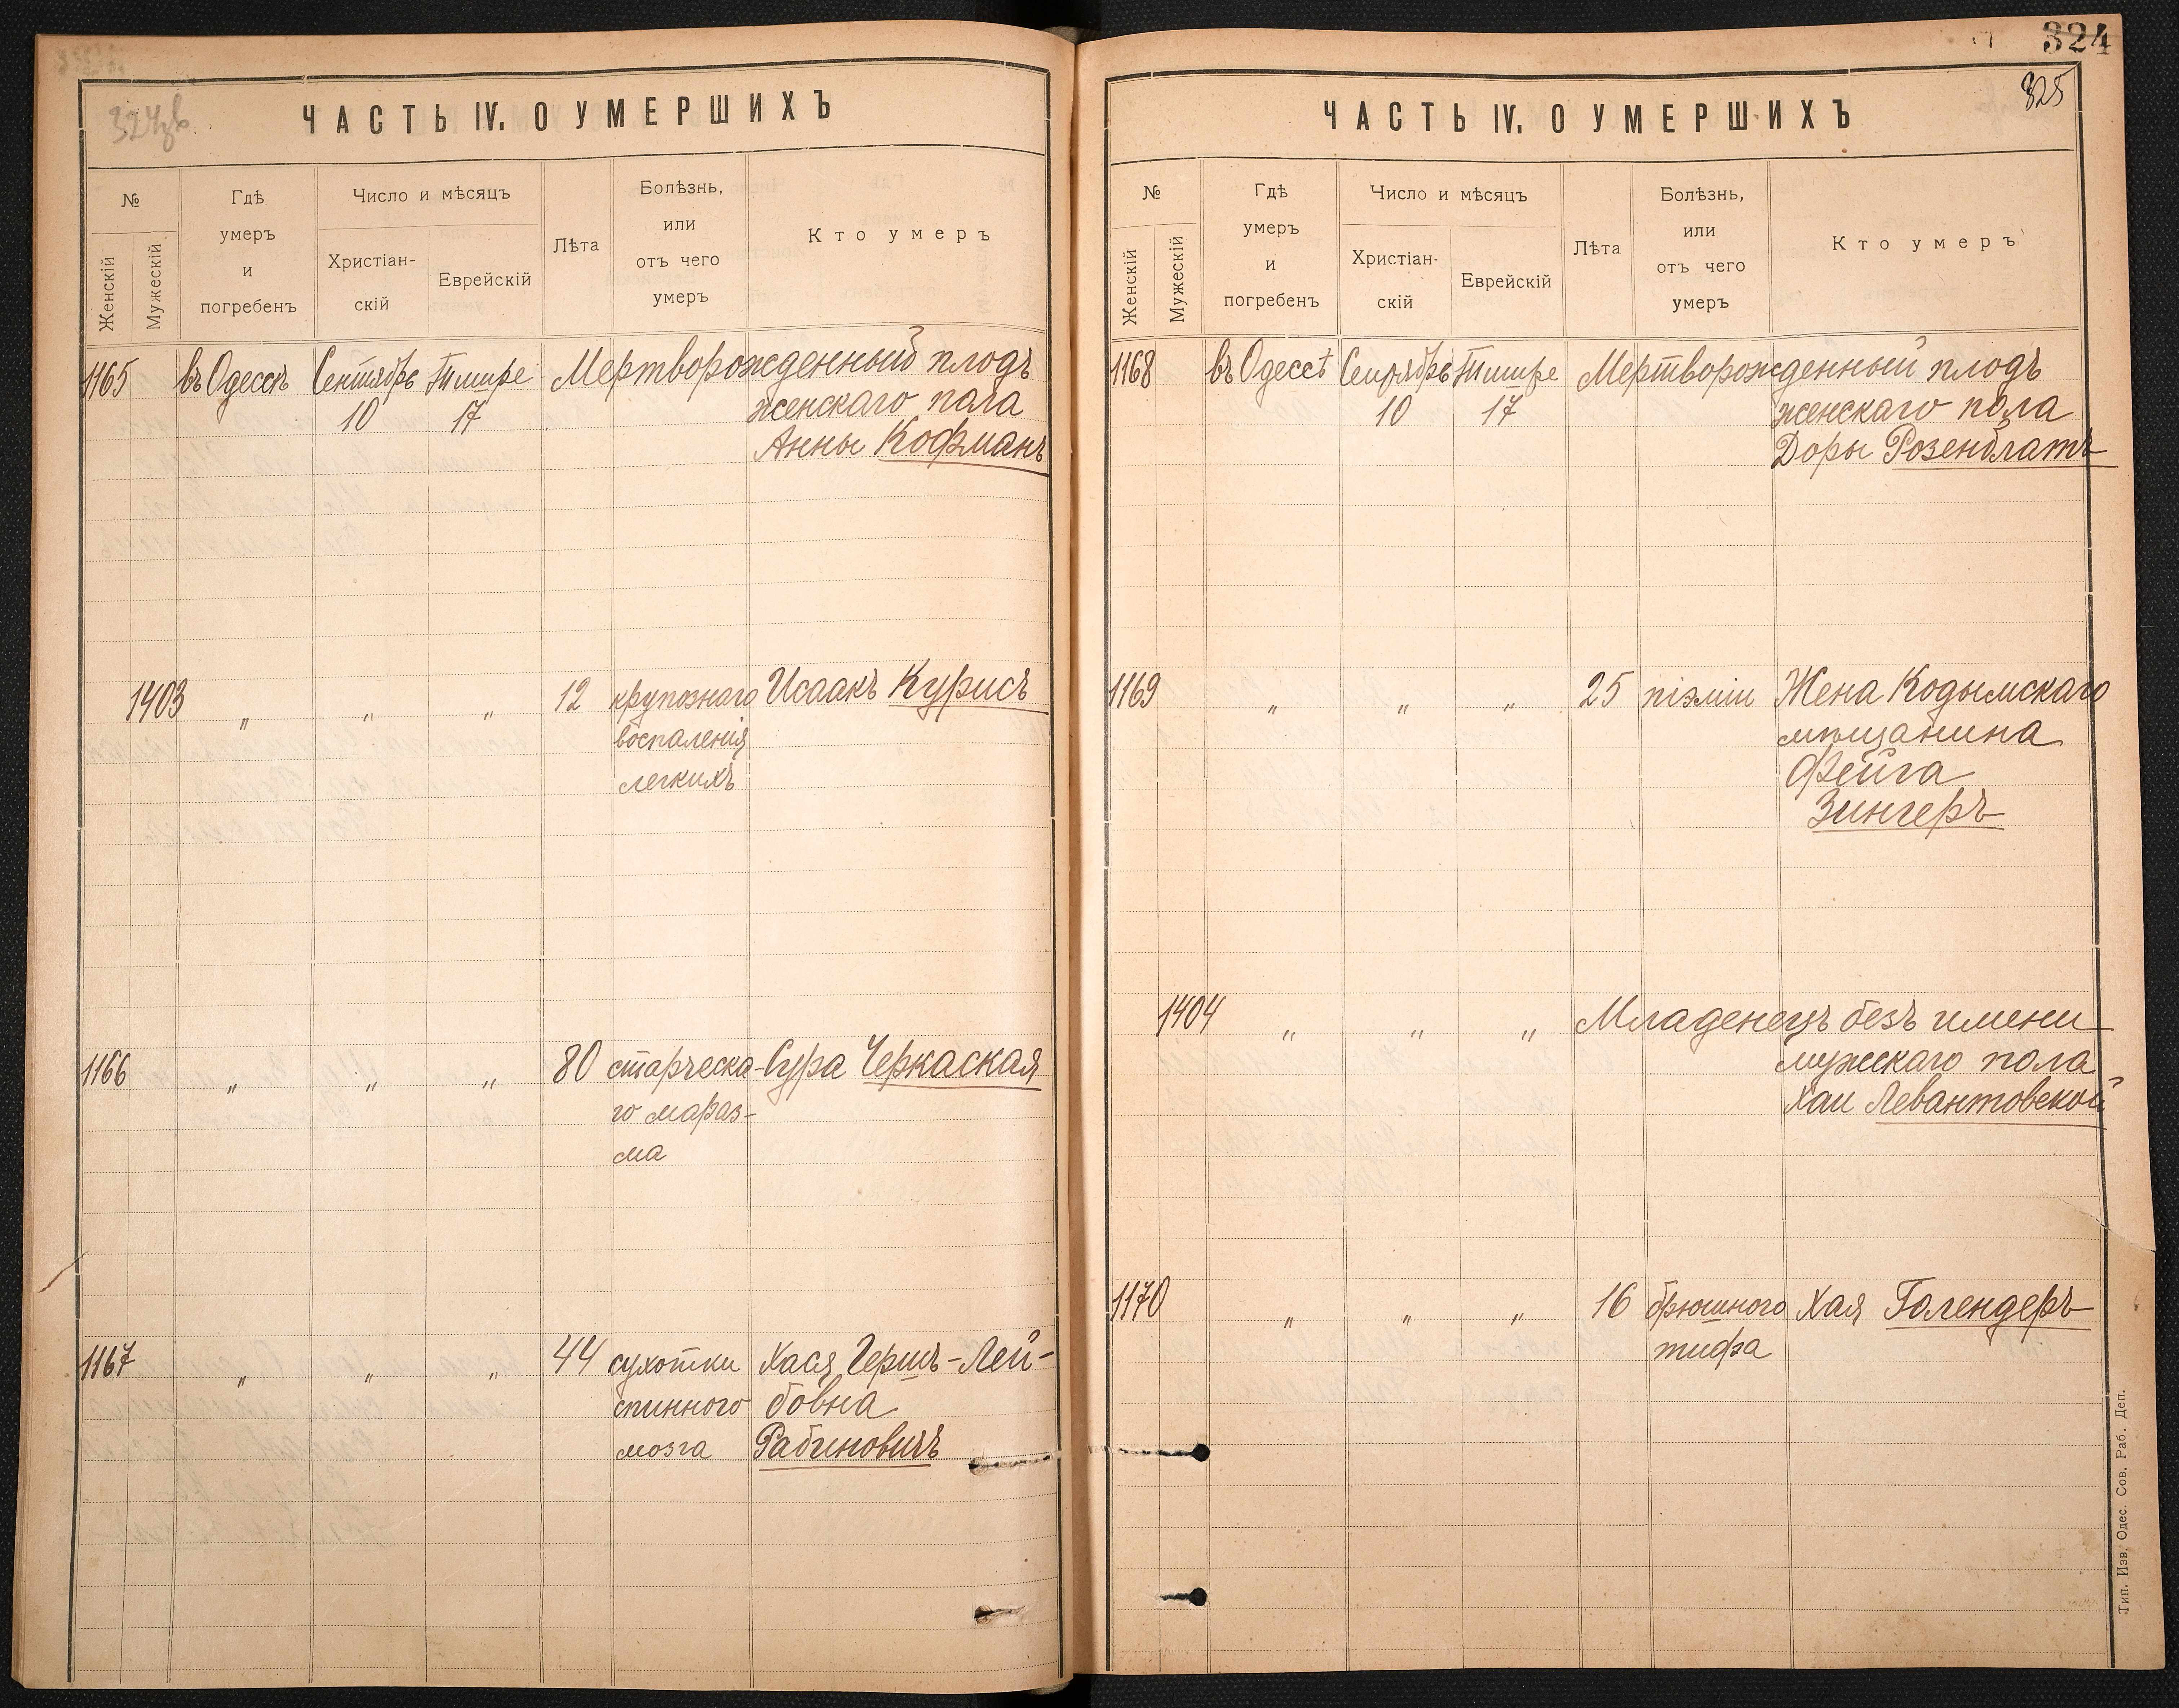 324
325
ЧАСТЬ IV. О УМЕРШИХЪ
№
Женскій
Мужескій
Гдѣ
умеръ
и
погребенъ
Число и мѣсяцъ
Христіан-
скій
Еврейскій
Лѣта
Болѣзнь,
или
отъ чего
умеръ
Кто умеръ
1165 въ Одессѣ Сентябрь Тишре Мертворожденный плодъ
10 17 женскаго пола
Анны Кофманъ
1403 " " " 12 крупознаго Исаакъ Курисъ
воспаленія
легкихъ
1166 " " " 80 старческа- Сура Черкаская
го мараз-
ма
1167 " " " 44 сухотки Хася Гершъ-Лей-
спинного бовна
мозга Рабиновичъ
ЧАСТЬ IV. О УМЕРШИХЪ
№
Женскій
Мужескій
Гдѣ
умеръ
и
погребенъ
Число и мѣсяцъ
Христіан-
скій
Еврейскій
Лѣта
Болѣзнь,
или
отъ чего
умеръ
Кто умеръ
1168 въ Одессѣ Сентябрь Тишре Мертворожденный плодъ
10 17 женскаго пола
Доры Розенблатъ
1169 " " " 25 піэміи Жена Кодымскаго
мѣщанина
Фейга
Зингеръ
1404 " " " Младенецъ безъ имени
мужскаго пола
Хаи Левантовской
1170 " " " 16 брюшного Хая Голендеръ
тифа
Тип. Изв. Одес. Сов. Раб. Деп.